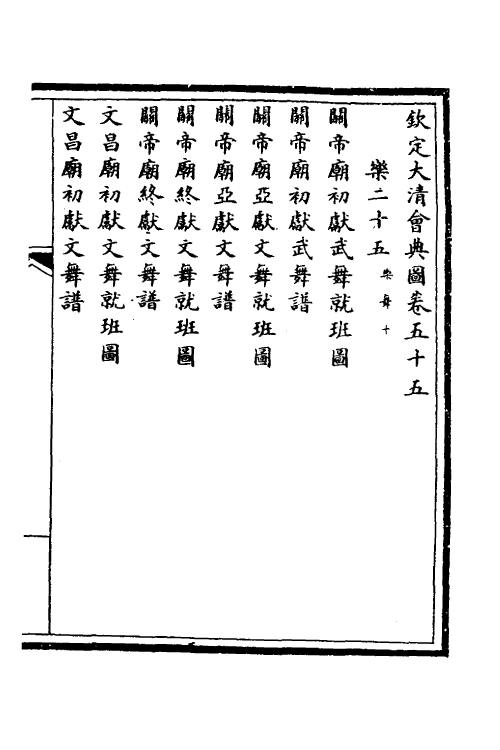 欽定大清會典圖卷五十五
樂二十五 樂舞十
關帝廟初獻武舞就班圖
關帝廟初獻武舞譜
關帝廟亞獻文舞就班圖
關帝廟亞獻文舞譜
關帝廟終獻文舞就班圖
關帝廟終獻文舞譜
文昌廟初獻文舞就班圖
文昌廟初獻文舞譜